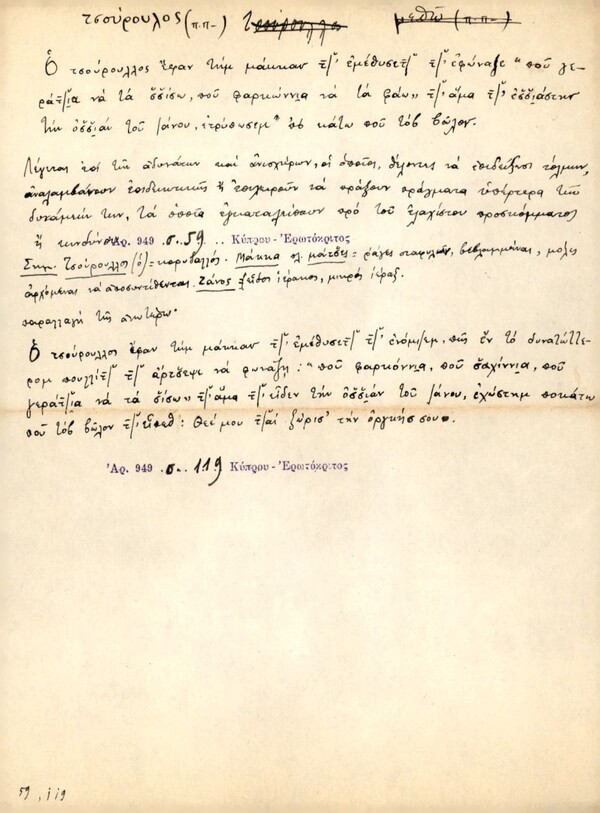 τσούρουλος (π.π-) τσούρουλλα μεθῶ (π.π-)
Ὁ τσούρουλλος ἔφαν τὴμ μάκκαν τζ̆' ἐμέθυσεν τζ̆' ἐφώναξε "ποῦ γε-
ράτζ̆ια νὰ τὰ σ̆σ̆ίσω, ποῦ φαρκώννια νὰ τὰ φάω" τζ̆' ἅμα τζ̆' ἐσ̆σ̆ιάστην
τὴν ὀσ̆σ̆ιὰν τοῦ ζάνου, ἐτρύπωσεμ πὸ κάτω ποῦ τὸβ βῶλον.
Λέγεται ἐπὶ τῶν ἀδυνάτων καὶ ἀνισχύρων, οἱ ὁποῖοι, θέλοντες νὰ ἐπιδείξωσι τόλμην,
ἀναλαμβάνουν ἐπιδεικτικῶς ἢ ἐπιχειροῦν νὰ πράξουν πράγματα ὑπέρτερα τῶν
δυνάμεών των, τὰ ὁποῖα ἐγκαταλείπουν πρὸ τοῦ ἐλαχίστου προσκόμματος
ἢ κινδύνου Ἀρ. 949 σ. 59 .. Κύπρου - Ἐρωτόκριτος
Σημ. Τσούρουλλος (ὁ) = κορυδαλλός. Μάκκα πλ. μάτσες = ράγες σταφυλῶν, βεβλαμμέναι, μόλις
ἀρχόμεναι νὰ ἀποσυντίθενται. Ζάνος εἶδος ἱέρακος, μικρὸς ἱέραξ.
παραλλαγὴ τῆς ἀνωτέρω.
Ὁ τσούρουλλος ἔφαν τὴμ μάκκαν τζ̆' ἐμέθυσεν τζ̆' ἐνόμισεμ πῶς ἔν τὸ δυνατώττε-
ρομ πουλλὶν τζ̆' ἄρτζεψε νὰ φωνάζη: "ποῦ φαρκόννια, ποῦ σαχίννια, ποῦ
γεράτζ̆ια νὰ τὰ σ̆ίσω" τζ̆' ἅμα τζ̆' εἶδεν τὴν ὀσ̆σ̆ιὰν τοῦ ζάνου, ἐχώστημ ποκάτω
ποῦ τὸβ βῶλον τζ̆' εἶπεν: Θεέ μου τζ̆αὶ ξώρισ' τὴν ὀργκήν σου.
Ἀρ. 949 σ. 119 Κύπρου - Ἐρωτόκριτος
59, 119